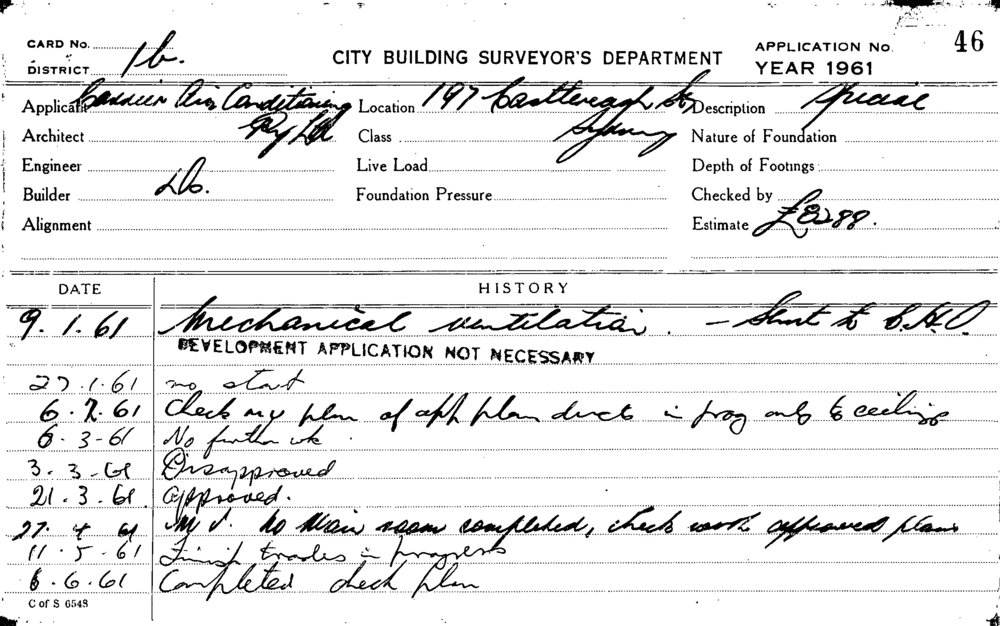 CARD No. 1b.
DISTRICT
CITY BUILDING SURVEYOR'S DEPARTMENT
APPLICATION No. 46
YEAR 1961
Applicant Carrier Air Conditioning Pty Ltd
Location 197 Castlereagh St, Sydney
Description
Architect
Class
Nature of Foundation
Engineer
Live Load
Depth of Footings
Builder Do.
Foundation Pressure
Checked by
Alignment
Estimate £8288.
DATE HISTORY
9.1.61 Mechanical ventilation. - to C.H.O.
DEVELOPMENT APPLICATION NOT NECESSARY
27.1.61 no start
6.2.61 Check my plan of app plan ducts in prog only to ceilings
6-3-61 No further wk.
3.3-61 Disapproved
21.3.61 approved.
27 4 61 to Main room completed, check work approved plans
11.5.61 Finish trades in progress
6.6.61 Completed check plan
C of S 6548